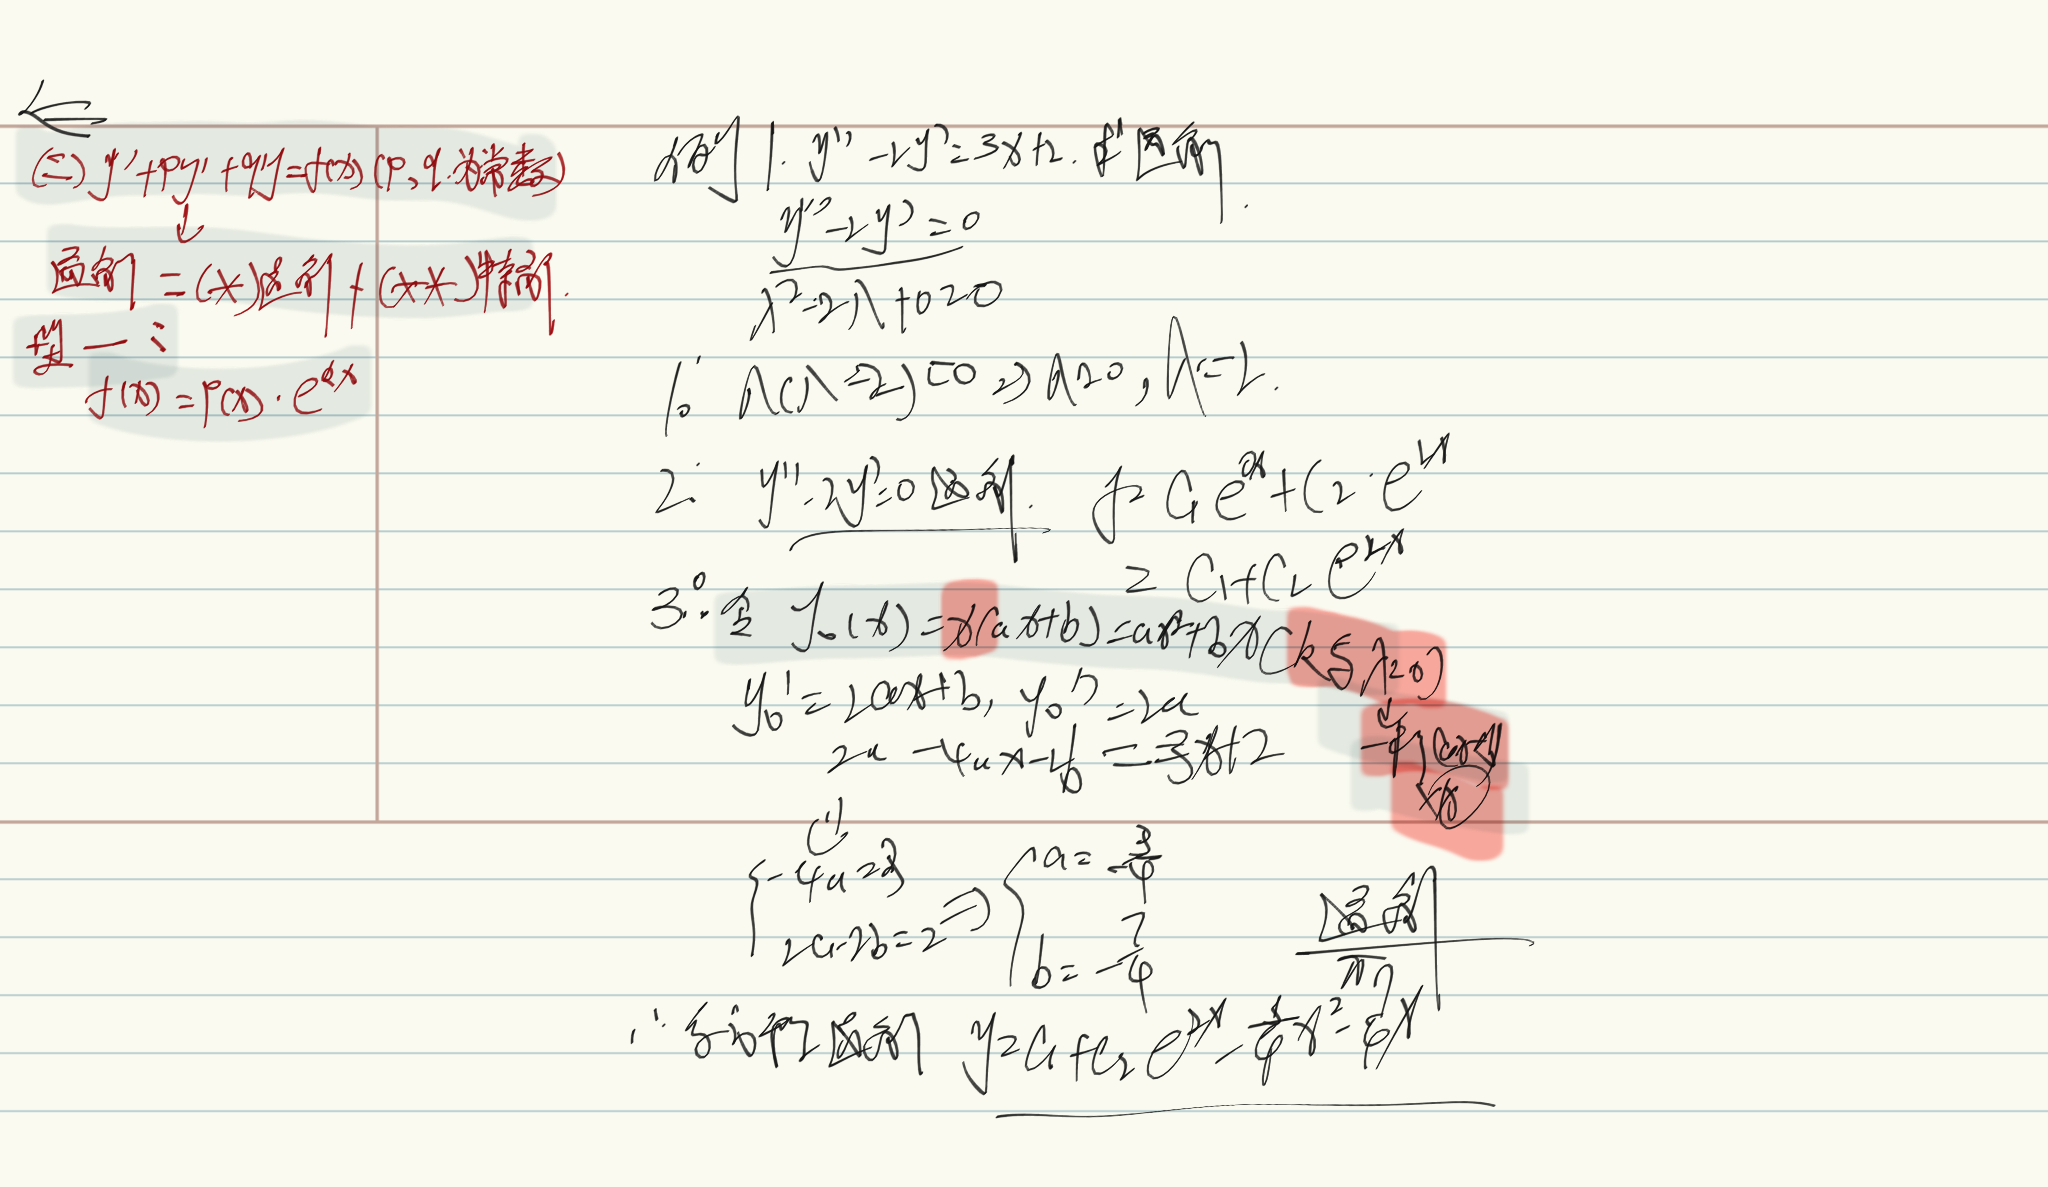 (二) y''+py'+qy=f(x) (p,q为常数)
↓
通解 = (*)通解 + (**)特解.
型一:
f(x)=P(x)·e^{αx}
例1. y''-2y'=3x+2. 求通解.
y''-2y'=0
λ²-2λ+0=0
1° λ(λ-2)=0 ⇒ λ=0, λ=2.
2° y''-2y'=0通解. y=C₁e^{0x}+C₂·e^{2x}
= C₁+C₂e^{2x}
3° 令 y₀(x)=x(ax+b)=ax²+bx (k与λ=0)
y₀'=2ax+b, y₀''=2a
(ax+b)
·x
2a-4ax-2b=3x+2
⇓
{-4a=3
2a-2b=2 ⇒ {a=-3/4
b=-7/4
通解
∴ 通解 y=C₁+C₂e^{2x}-3/4x²-7/4x